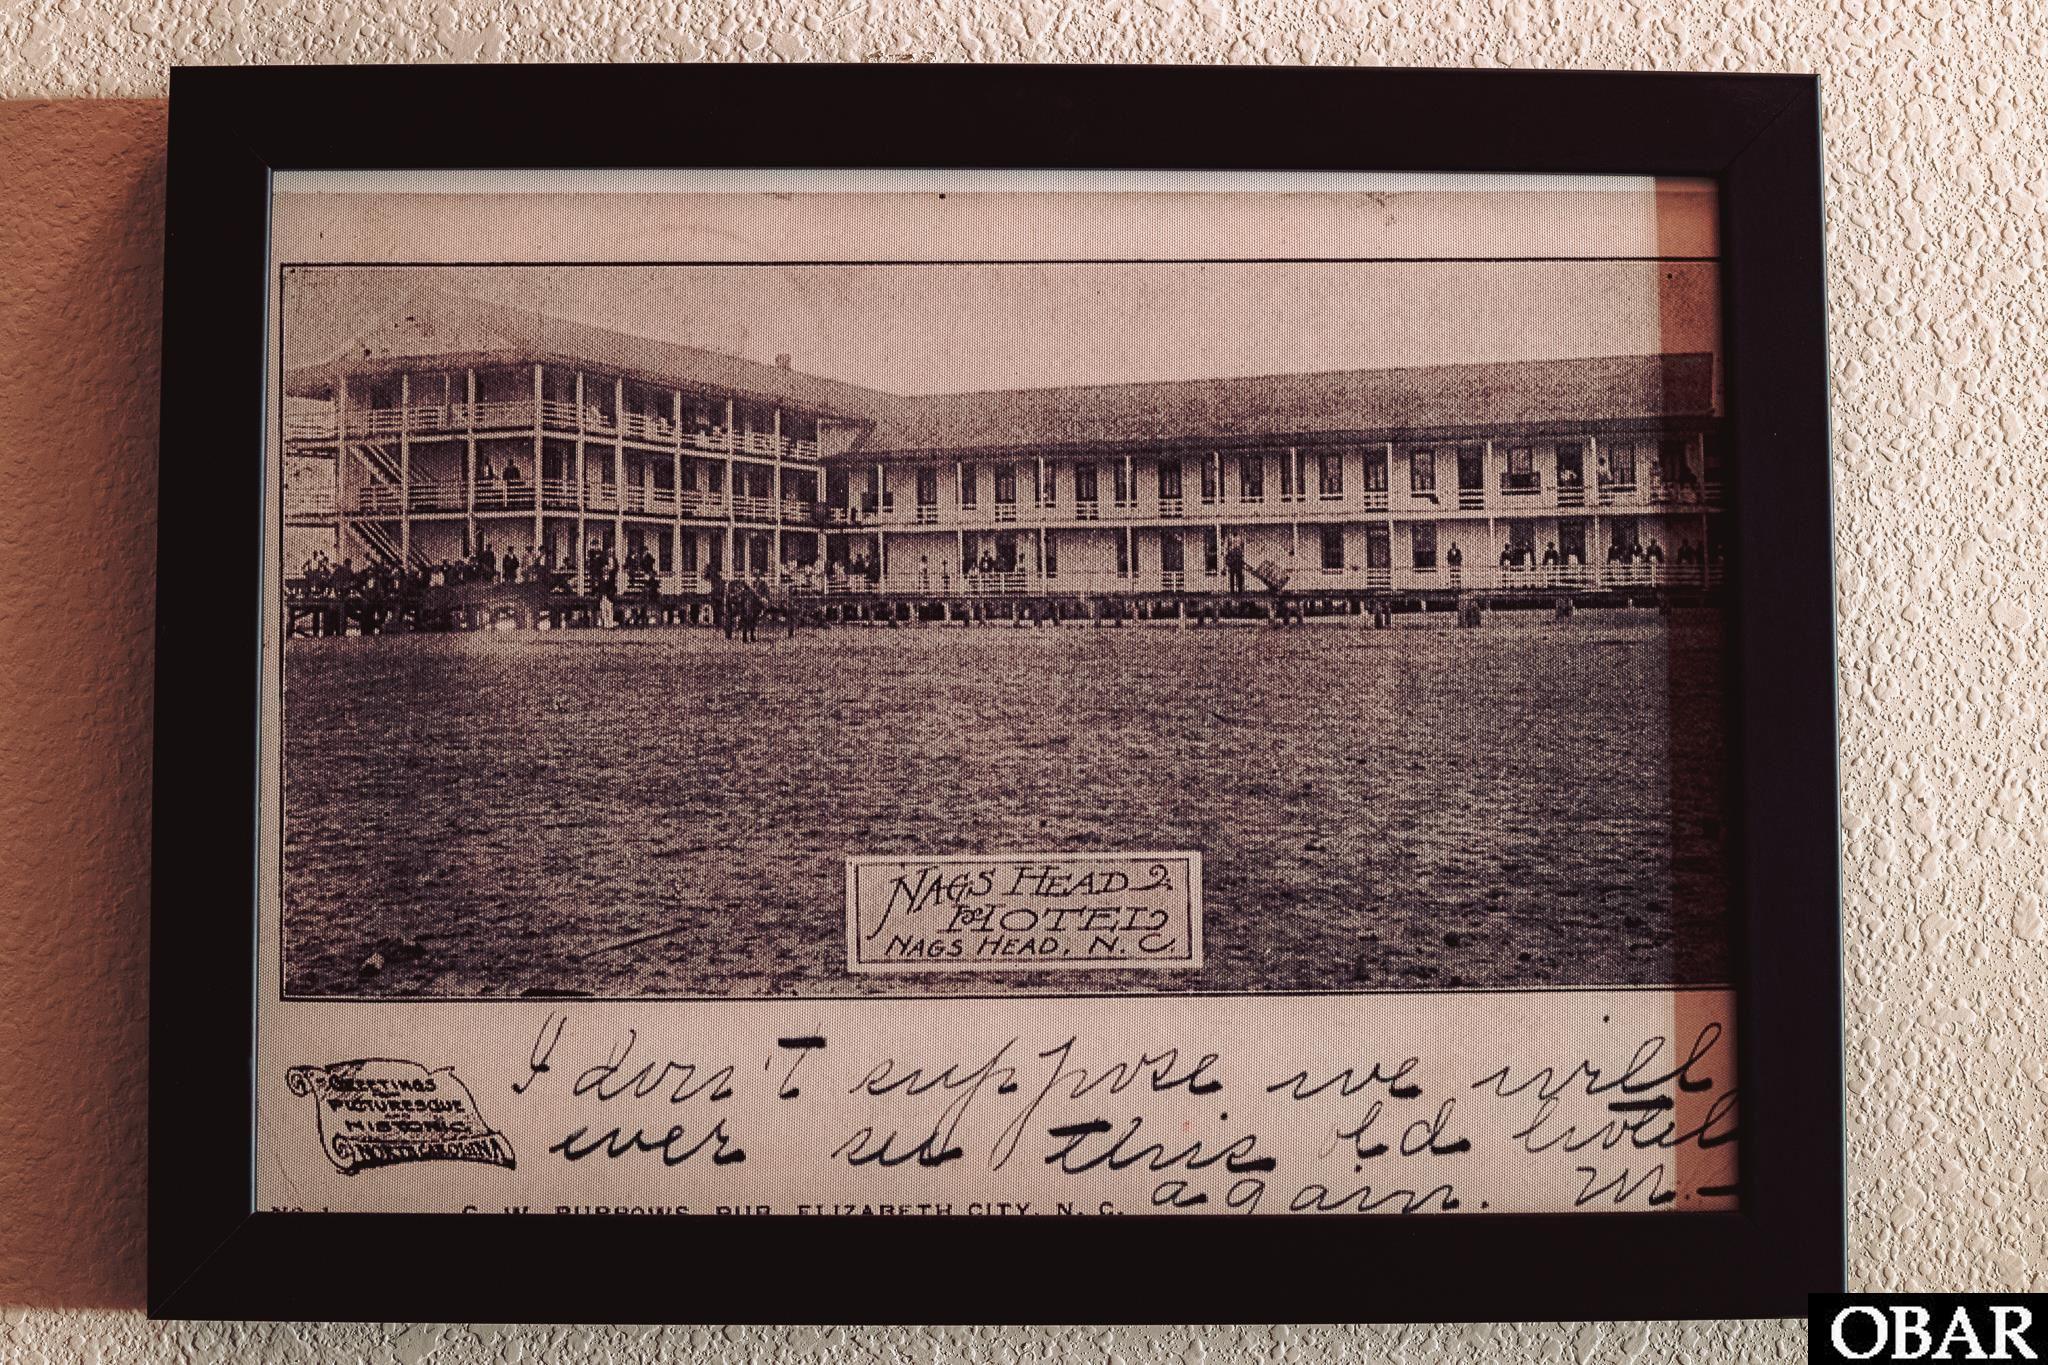 NAGS HEAD
HOTEL
NAGS HEAD, N. C.
GREETINGS
FROM
PICTURESQUE
AND
HISTORIC
NORTH CAROLINA
I don't suppose we will
ever see this old hotel
again. M.-
NO. 1 C. W. BURROWS, PUB. ELIZABETH CITY, N. C.
OBAR